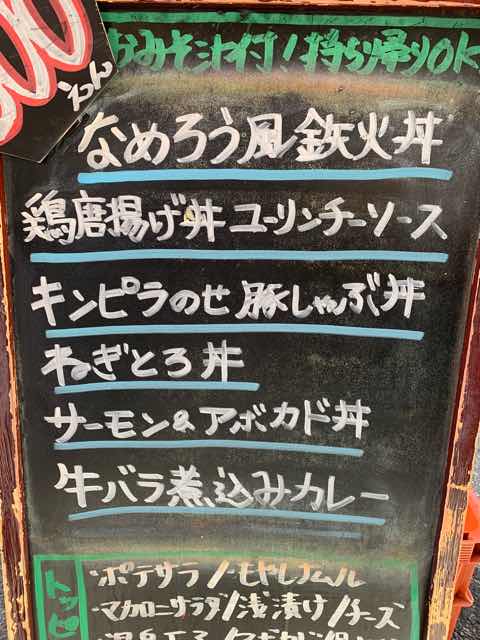 00
えん
みそ汁付!持ち帰りOK
なめろう風鉄火丼
鶏唐揚げ丼ユーリンチーソース
キンピラのせ豚しゃぶ丼
ねぎとろ丼
サーモン&アボカド丼
牛バラ煮込みカレー
トッピ
・ポテサラ/もやしナムル
・マカロニサラダ/浅漬け/チーズ